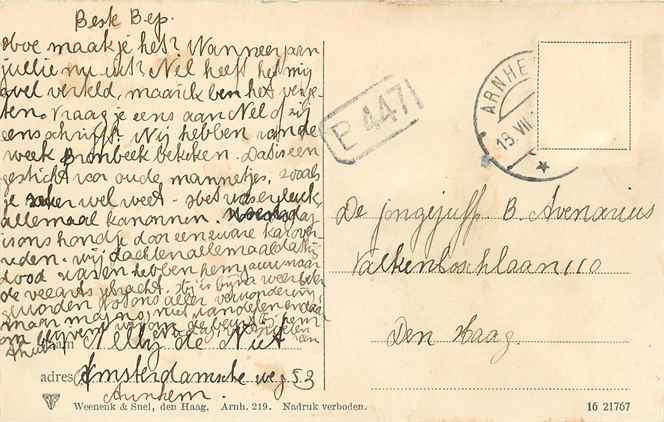 Beste Bep.
Hoe maak je het? Wanneer gaan
jullie nu uit? Nel heeft het mij
wel verteld, maar ik ben het verge-
ten. Vraag je eens aan Nel of zij
eens schrijft. Wij hebben van de
week Bronbeek bekeken. Dat is een
gesticht voor oude mannetjes, zoals
je zeker wel weet
allemaal kanonnen.
is ons hondje door een zware kar over-
reden. wij dachten allemaal dat hij
dood was en hebben hem
de veearts gebracht. Hij is bijna weer beter
geworden tot ons aller verwondering
maar
ARNHE
19 VII
P 4471
De jongejuffr. B. Avenarius
Valkenboschlaan 110
Den Haag.
Nelly de Niet
adres Amsterdamsche weg 53
Arnhem.
Weenenk & Snel, den Haag. Arnh. 219. Nadruk verboden.
16 21767